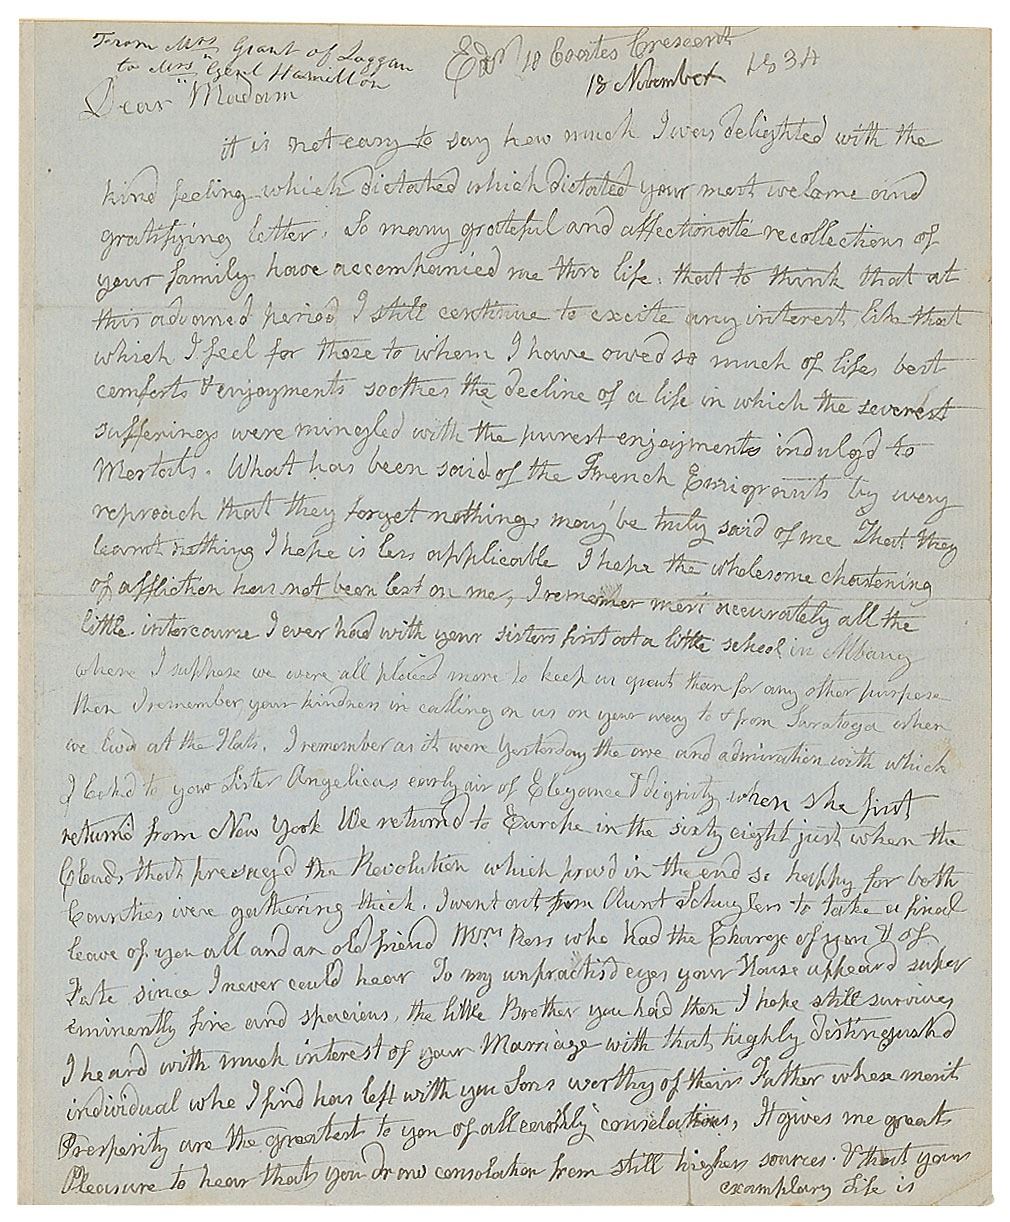 From Mrs Grant of Laggan
to Mrs Genl Hamilton
Edr 18 Coates Crescent
18 November 1834
Dear Madam
it is not easy to say how much I was delighted with the
kind feeling which dictated which dictated your most welcome and
gratifying letter. So many grateful and affectionate recollections of
your family have accompanied me thro life. that to think that at
this advanced period I still continue to excite any interest like that
which I feel for those to whom I have owed so much of lifes best
comforts & enjoyments soothes the decline of a life in which the severest
sufferings were mingled with the purest enjoyments indulgd to
Mortals. What has been said of the French Emigrants by way
reproach that they forget nothing, may be truly said of me That they
learnt nothing I hope is less applicable I hope the wholesome chastening
of affliction has not been lost on me, I remember most accurately all the
little intercourse I ever had with your sisters first at a little school in Albany
where I suppose we were all placed more to keep us quiet than for any other purpose
then I remember your kindness in calling on us on your way to & from Saratoga when
we livd at the Flats. I remember as it were yesterday the awe and admiration with which
I lookd to your Sister Angelicas early air of Elegance & dignity when she first
returnd from New York We returnd to Europe in the sixty eight just when the
Clouds that presagd the Revolution which provd in the end so happy for both
Countries were gathering thick. I went out from Aunt Schuylers to take a final
leave of you all and an old friend Mrs Ross who had the Charge of you & of
Fate since I never could hear To my unpractisd eyes your House appeard super
eminently fine and spacious, the little Brother you had then I hope still survives
I heard with much interest of your Marriage with that highly distinguishd
individual who I find has left with you Sons worthy of their Father whose merit
Prosperity are the greatest to you of all earthly consolations, It gives me great
Pleasure to hear that you draw consolation from still higher sources. & that your
exemplary Life is